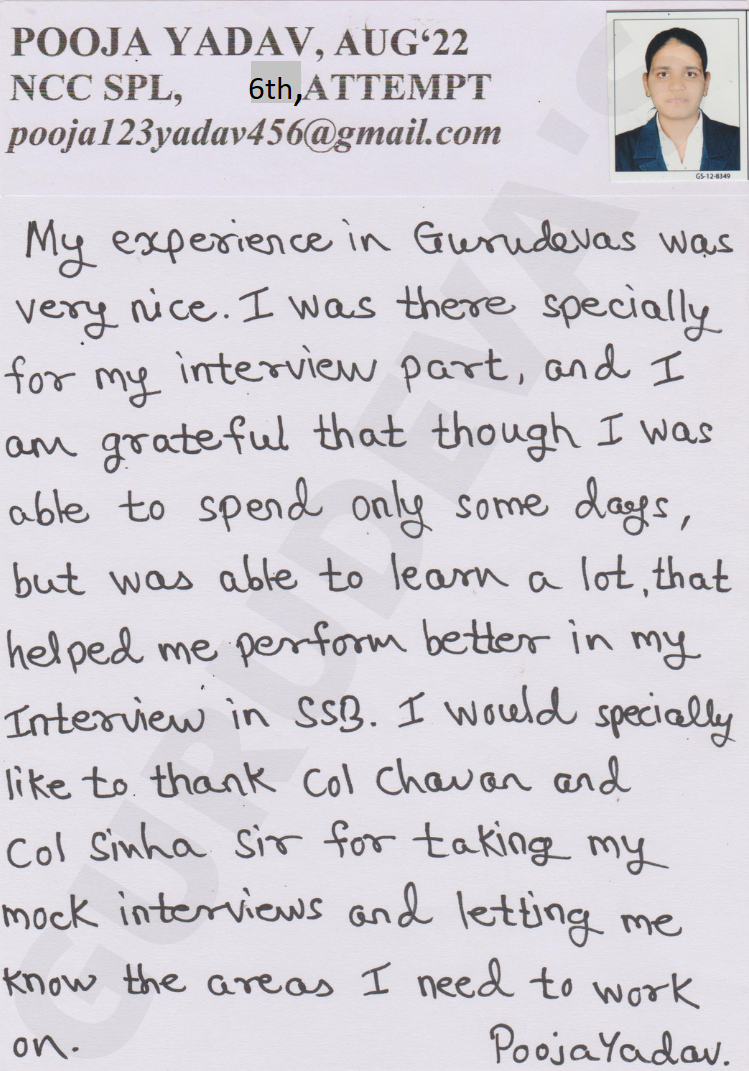 POOJA YADAV, AUG‘22
NCC SPL, 6th, ATTEMPT
pooja123yadav456@gmail.com
GS-12-8349
My experience in Gurudevas was
very nice. I was there specially
for my interview part, and I
am grateful that though I was
able to spend only some days,
but was able to learn a lot, that
helped me perform better in my
Interview in SSB. I would specially
like to thank Col Chavan and
Col Sinha Sir for taking my
mock interviews and letting me
know the areas I need to work
on. Pooja Yadav.
GURUDEVA'S